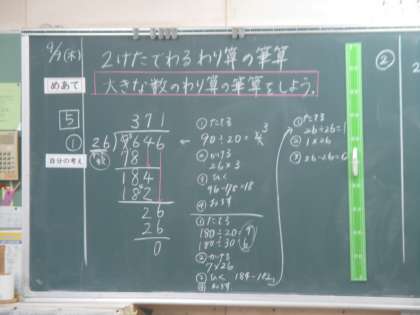 9/7(木)
2けたでわるわり算の筆算
めあて
大きな数のわり算の筆算をしよう。
5
①
371
26)9646
78
184
182
26
26
0
自分の考え
①たてる
90÷20=
3
②かける
26×3
③ひく
96-78=18
④おろす
①たてる
180÷20=9
180÷30=6
②かける
7×26
③ひく 184-182
④おろす
①たてる
26÷26=1
②1×26
③26-26=0
②